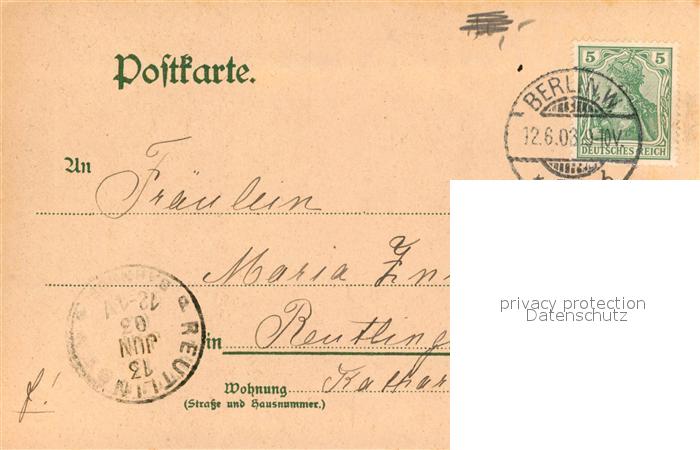 Postkarte.
5 5
BERLIN.W.
12.6.03.9-10V.
DEUTSCHES REICH
An
Fräulein
Maria
privacy protection
Datenschutz
REUTLIN
12-1V
03
JUN
13
in Reutling
Wohnung
(Straße und Hausnummer.)
Kathar
f!